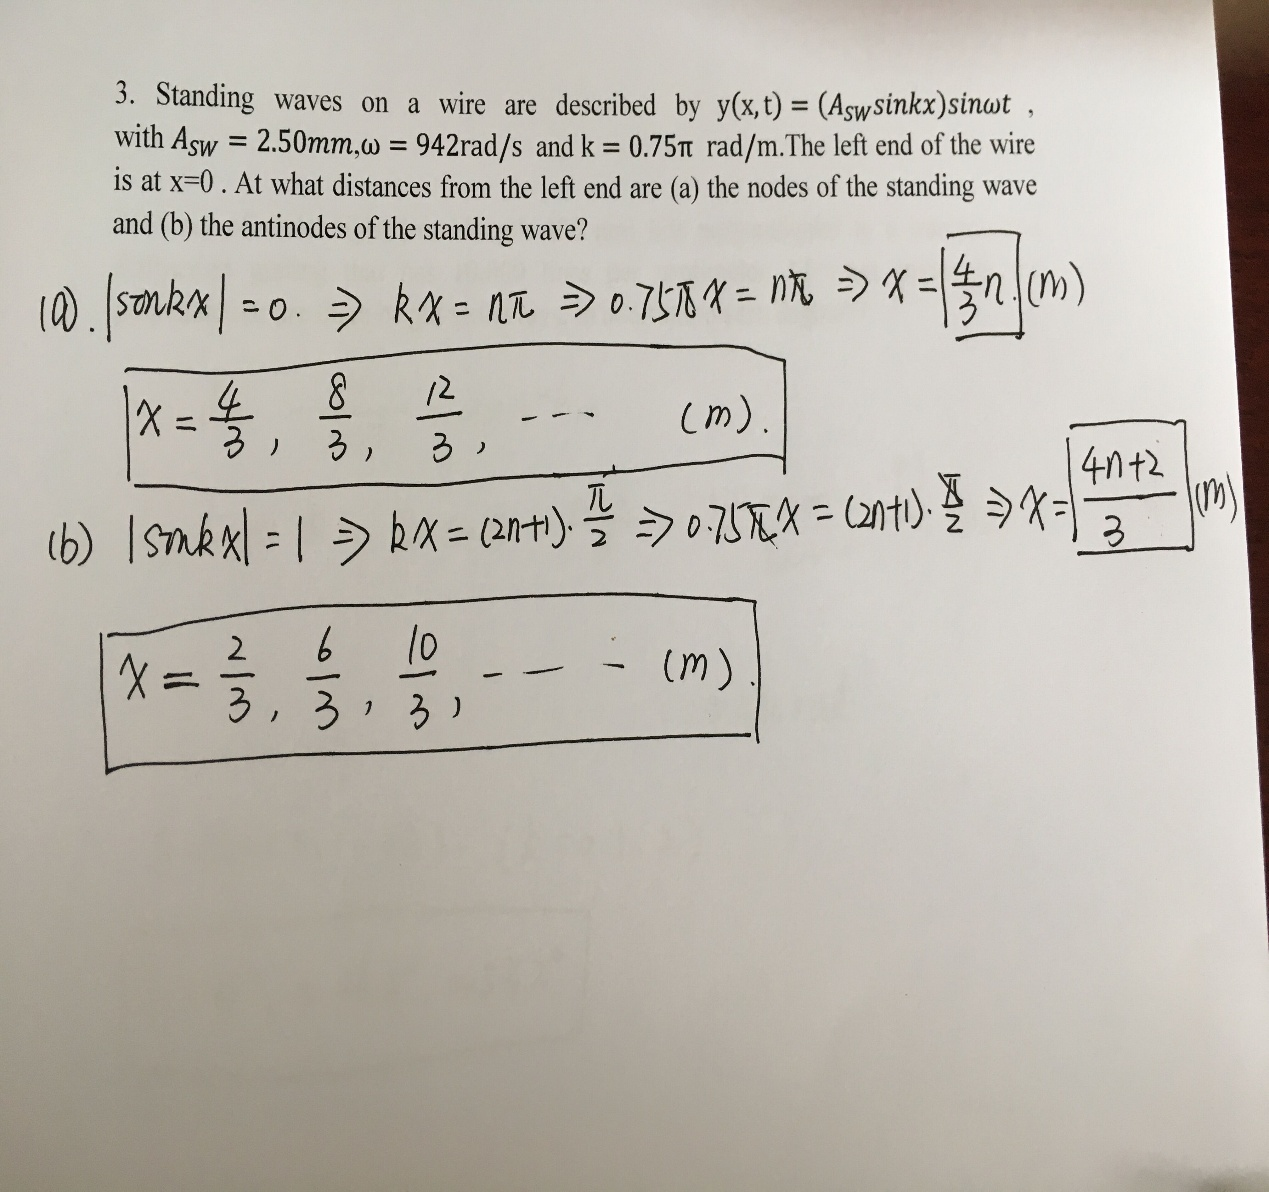 3. Standing waves on a wire are described by y(x,t) = (A_SW sinkx)sinωt ,
with A_SW = 2.50mm,ω = 942rad/s and k = 0.75π rad/m.The left end of the wire
is at x=0 . At what distances from the left end are (a) the nodes of the standing wave
and (b) the antinodes of the standing wave?
(a). |sinkx| = 0. ⇒ kx = nπ ⇒ 0.75πx = nπ ⇒ x = 4/3 n. (m)
x = 4/3, 8/3, 12/3, --- (m).
(b) |sinkx| = 1 ⇒ kx = (2n+1)·π/2 ⇒ 0.75πx = (2n+1)·π/2 ⇒ x = (4n+2)/3 (m)
x = 2/3, 6/3, 10/3, --- (m).